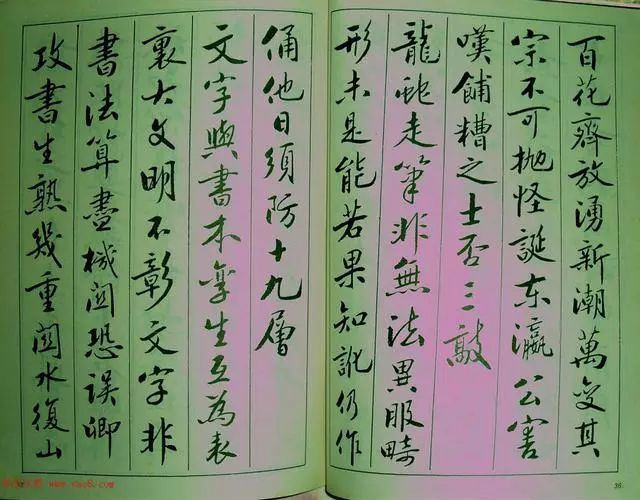 百花齊放湧新潮萬變其
宗不可拋怪誕東瀛公害
嘆餔糟之士否三敲
龍蛇走筆非無法異服畸
形未是能若果知訛仍作
俑他日須防十九層
文字與書本孿生互為表
裏大文明不彰文字非
書法算盡機關恐誤卿
攻書生熟幾重關水復山
36
www.yac8.com